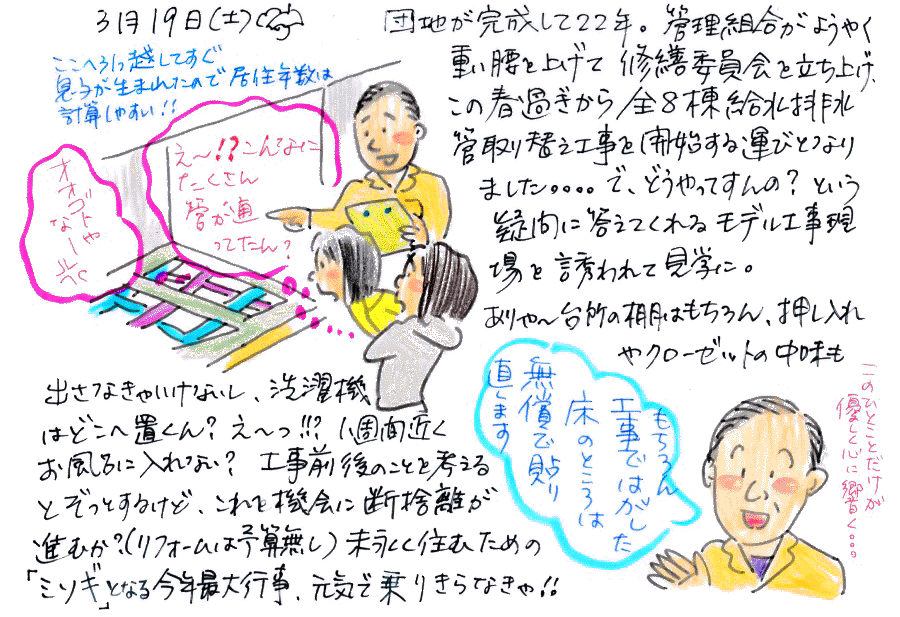 3月19日(土)
ここへ引っ越してすぐ
息子が生まれたので居住年数は
計算しやすい!!
団地が完成して22年。管理組合がようやく
重い腰を上げて修繕委員会を立ち上げ、
この春過ぎから全8棟給水排水
管取り替え工事を開始する運びとなり
ました。。。。で、どうやってすんの?という
疑問に答えてくれるモデル工事現
場を誘われて見学に。
ありゃ〜台所の棚はもちろん、押し入れ
やクローゼットの中味も
出さなきゃいけないし、洗濯機
はどこへ置くん?え〜っ!!?1週間近く
お風呂に入れない?工事前後のことを考える
とぞっとするけど、これを機会に断捨離が
進むか?(リフォームは予算無し)末永く住むための
「ミソギ」となる今年最大行事、元気で乗りきらなきゃ!!
え〜!?こんなに
たくさん
管が通
ってたん?
オオゴトや
なー
もちろん
工事ではがした
床のところは
無償で貼り
直します
このひとことだけが
優しく心に響く。。。